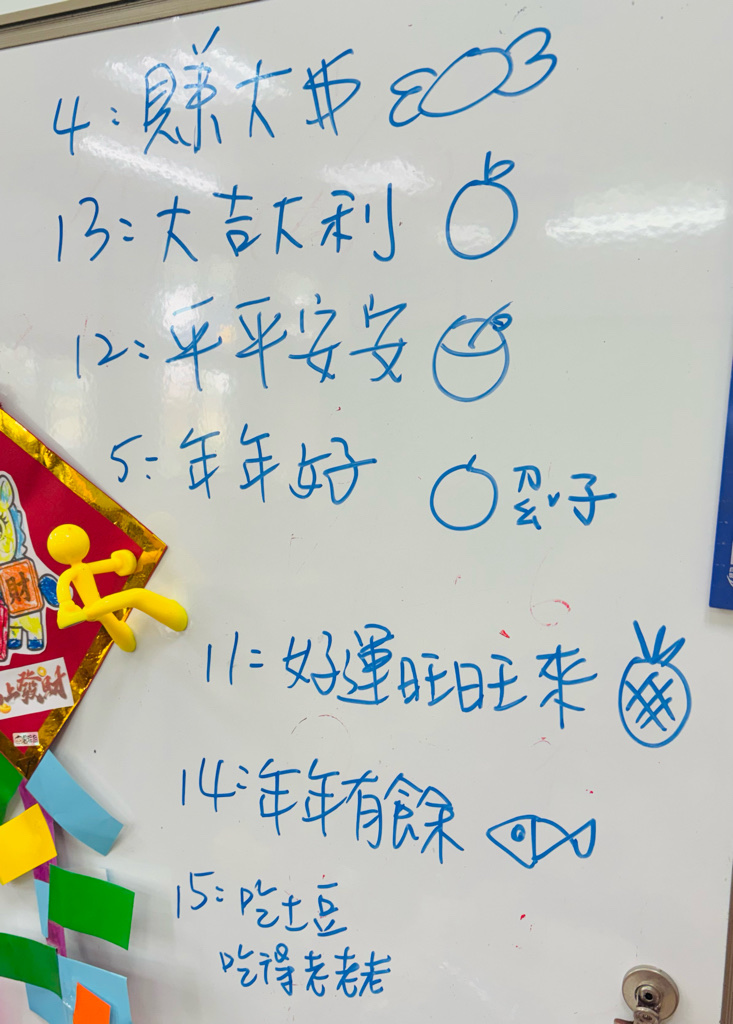 4:賺大$
13:大吉大利
12:平平安安
5:年年好 ㄗㄠˇ子
財
11:好運旺旺來
上發財
14:年年有餘
15:吃土豆
吃得老老老